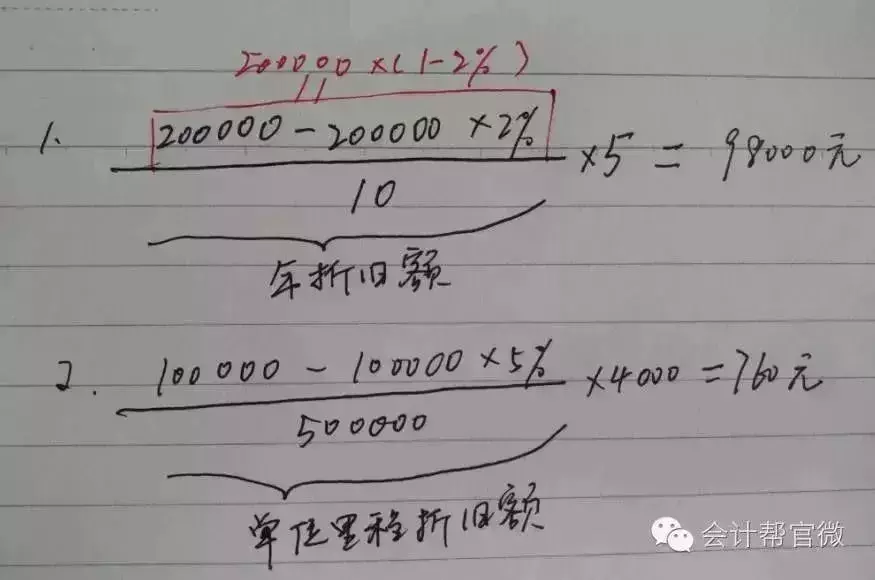 200000×(1-2%)
1. (200000-200000×2%)/10 ×5=98000元
年折旧额
2. (100000-100000×5%)/500000 ×4000=760元
单位里程折旧额
会计帮官微